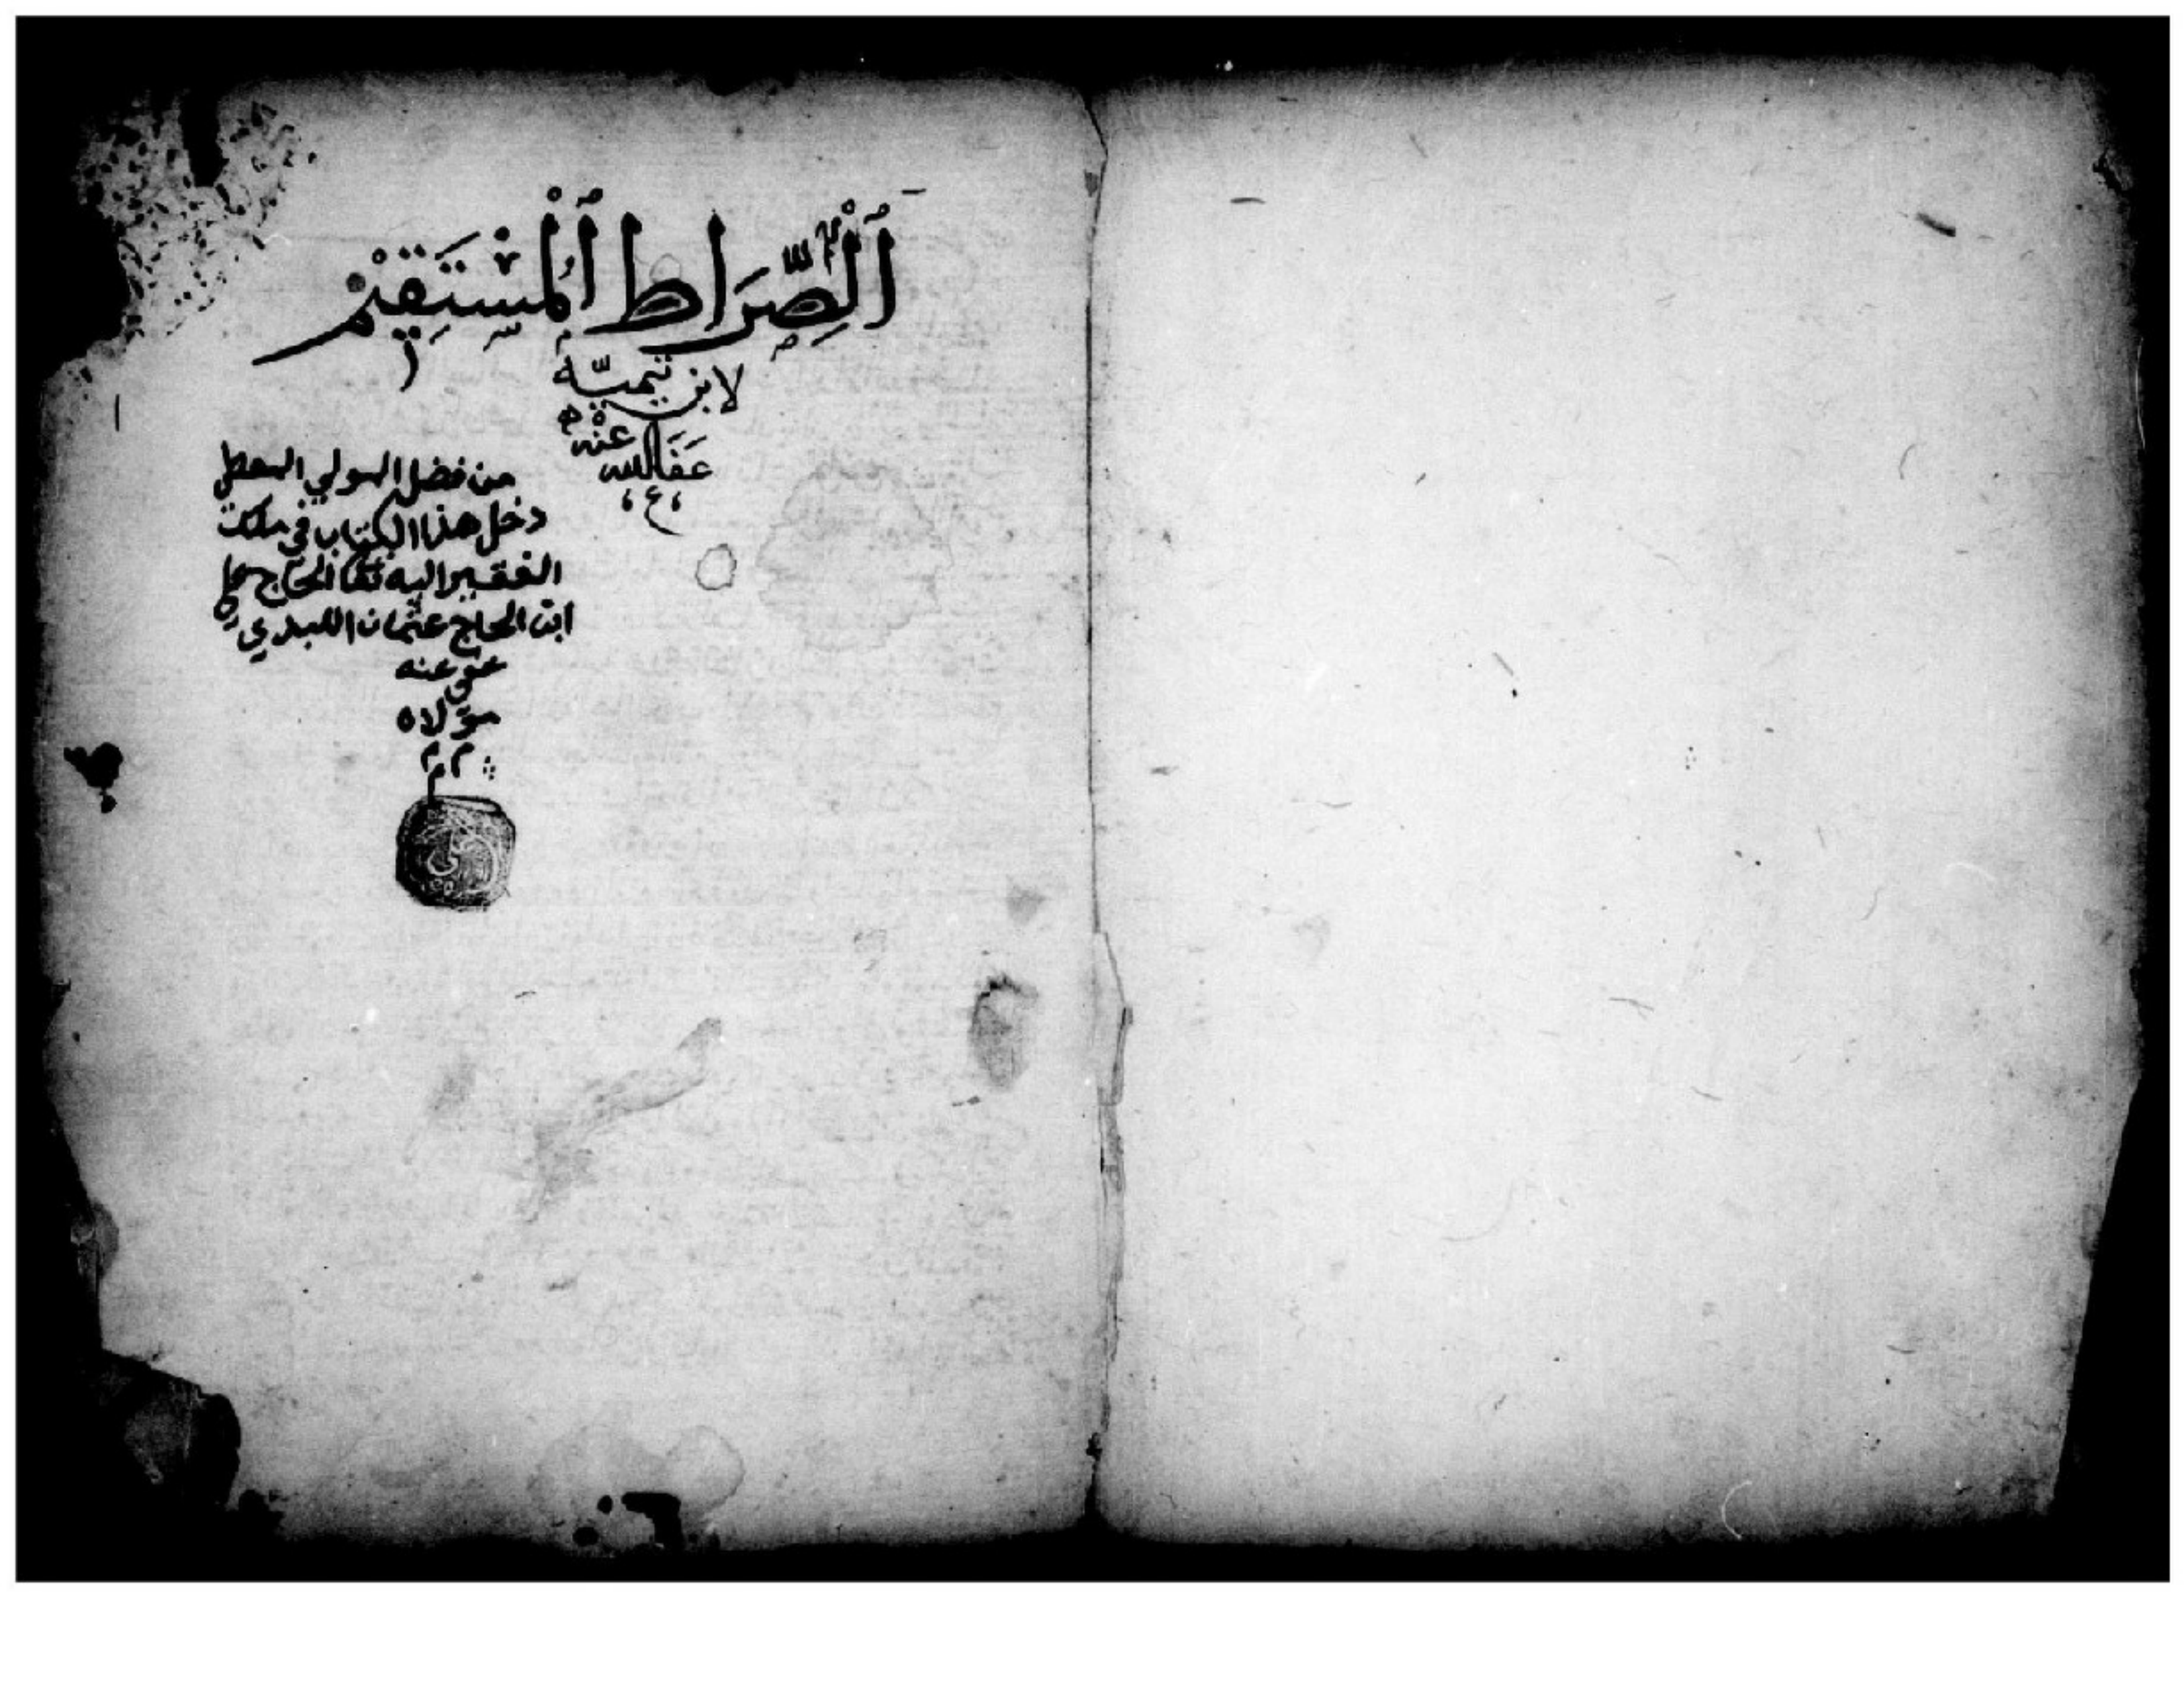 اَلصِّرَاط اَلْمُسْتَقِيْمْ
لابن تيميّه
عَفَا الله عنْه
من فضل المولي المعطي
دخل هذا الكتاب في ملك
الفقير اليه تعا الحاج علي
ابن الحاج عثمان اللبدي
عفي عنه
مولاه